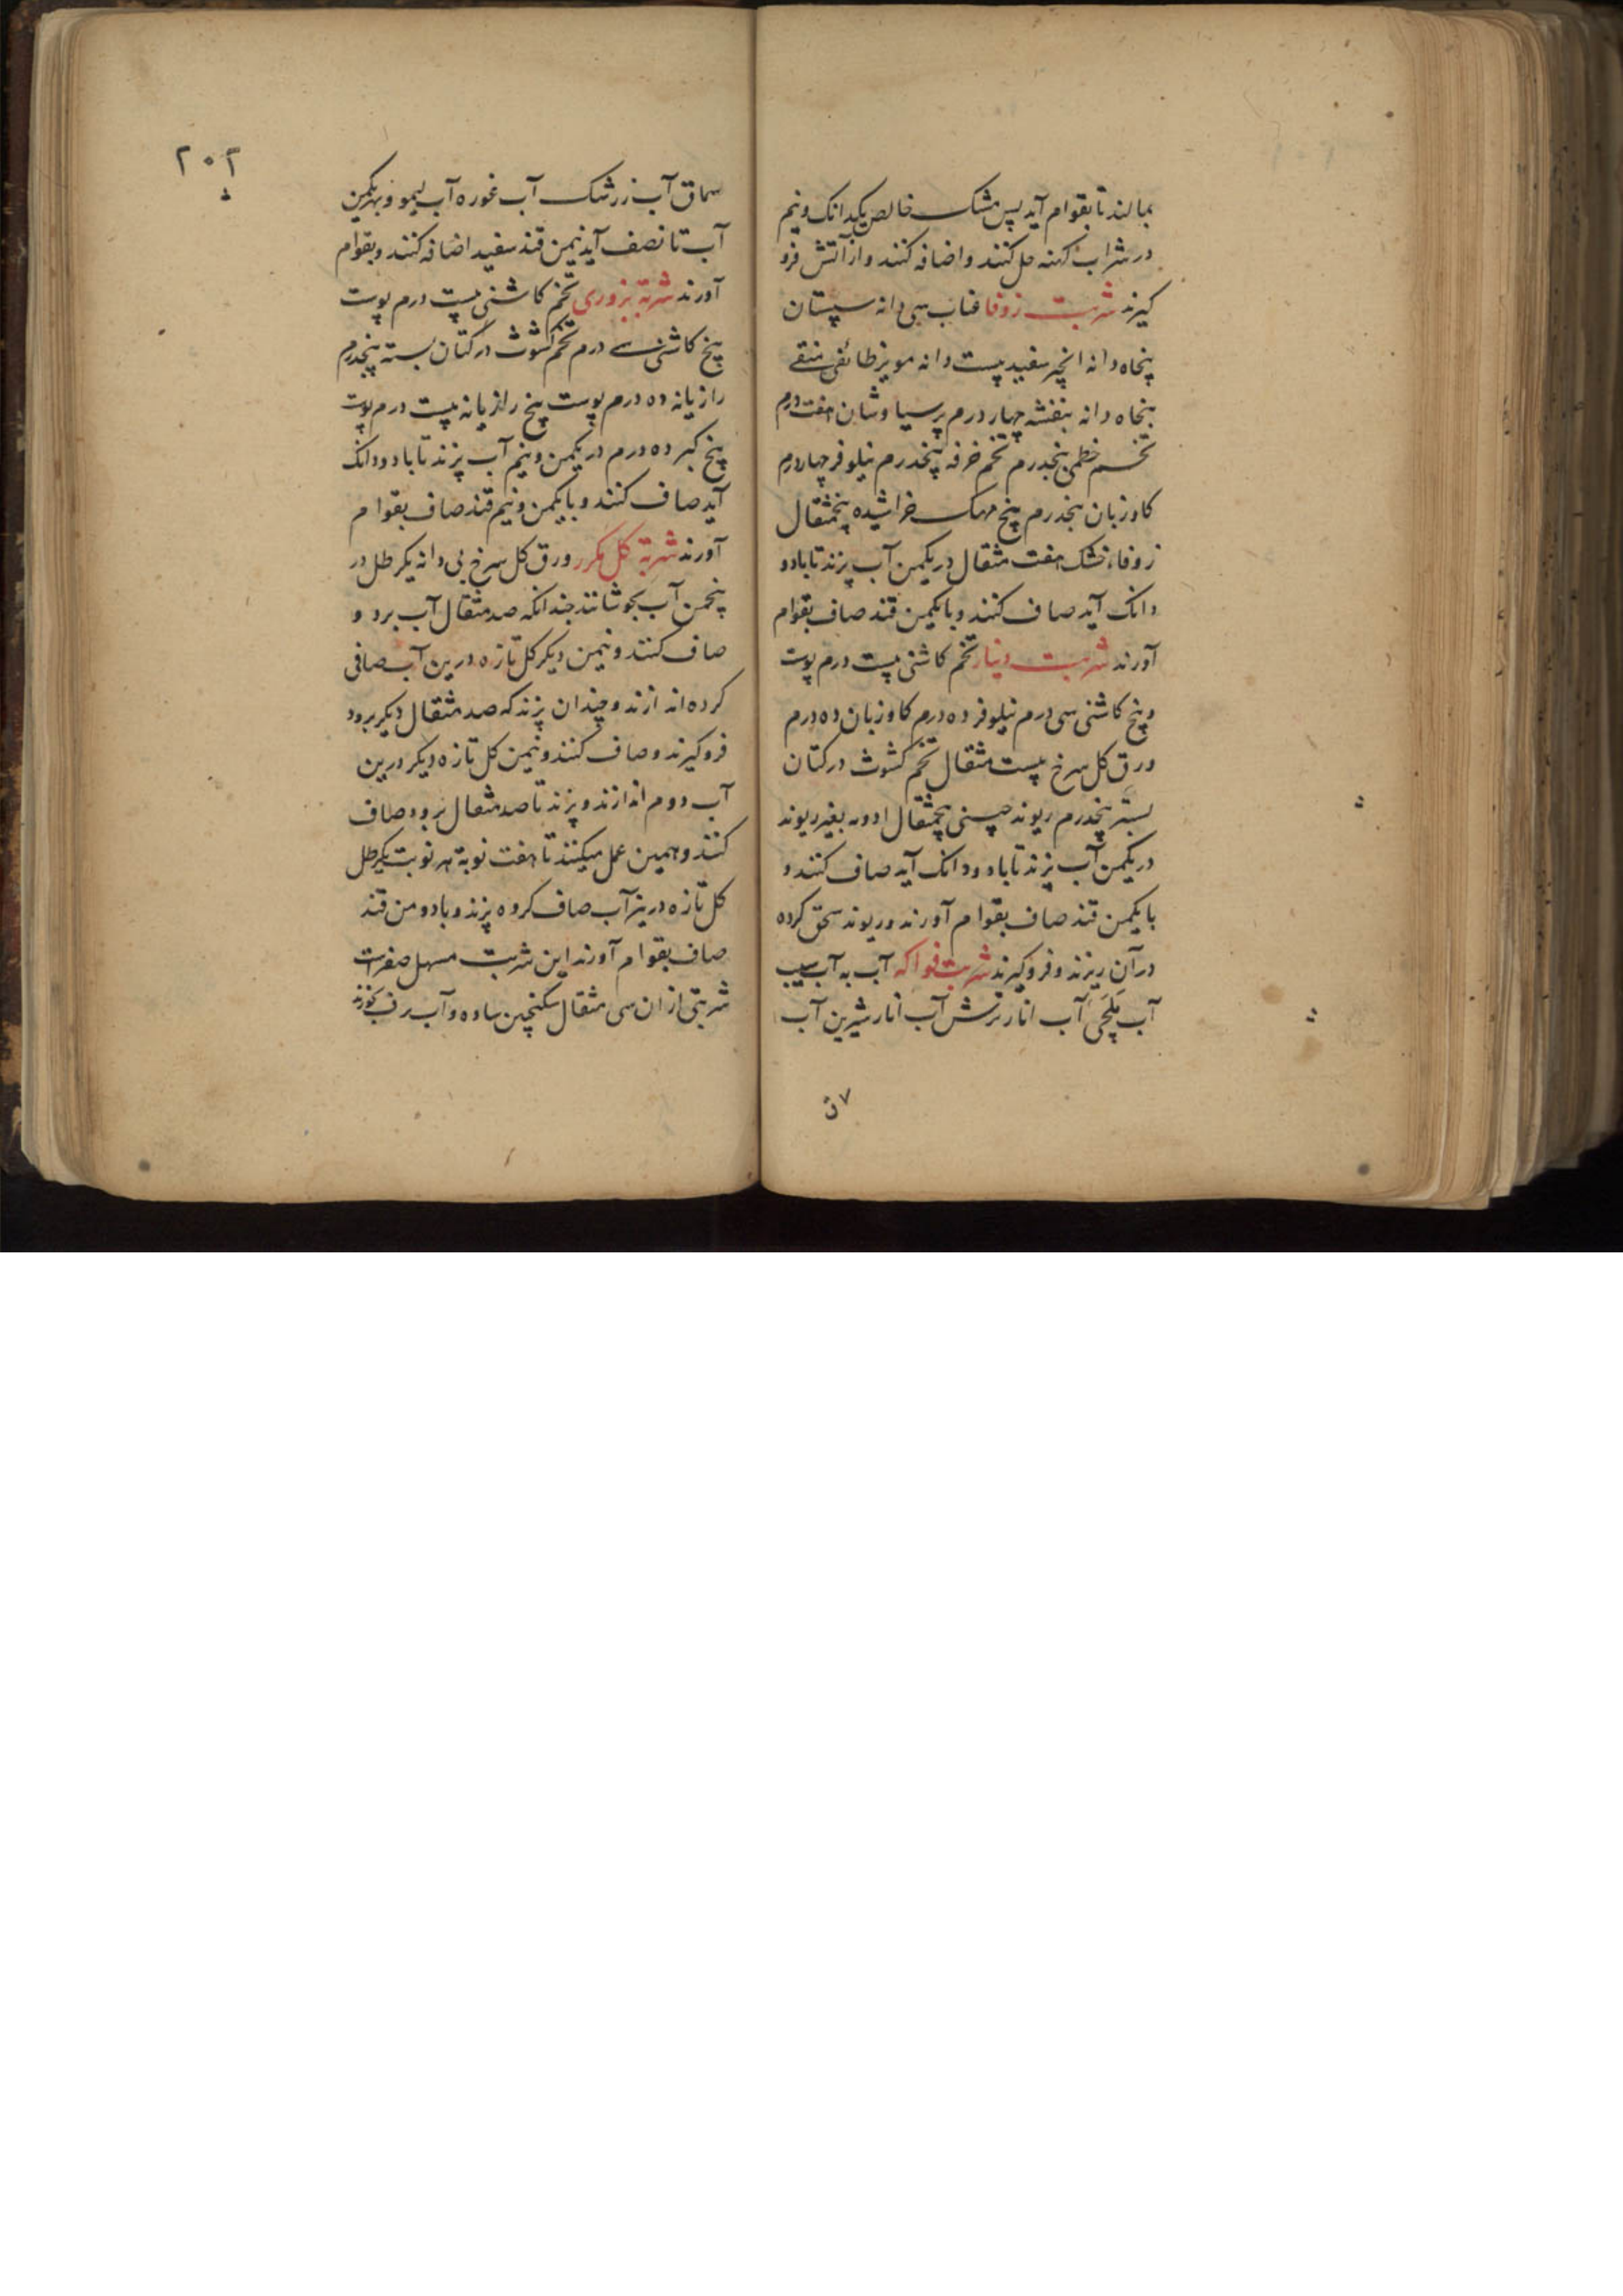 بمالند تا بقوام آید پس مشک خالص یکدانک ونیم
در شراب کهنه حل کنند و اضافه کنند و از آتش فرو
کیرند شربت زوفا عناب سی دانه سپستان
پنجاه دانه انجیر سفید بیست دانه مویز طائفی منقے
پنجاه دانه بنفشه چهار درم پرسیاوشان هفت درم
تخم خطمی پنجدرم تخم خرفه پنجدرم نیلوفر چهار درم
کاوزبان پنجدرم بیخ مهک خراشیده پنجمثقال
زوفاء خشک هفت مثقال در یکمن آب پزند تا با دو
دانک آید صاف کنند و با یکمن قند صاف بقوام
آورند شربت دینار تخم کاشنی بیست درم پوست
وبیخ کاشنی سی درم نیلوفر ده درم کاوزبان ده درم
ورق کل سرخ بیست مثقال تخم کشوث در کتان
بسته پنجدرم ریوند چینی پنجمثقال ادویه بغیر ریوند
در یکمن آب پزند تا با دودانک آید صاف کنند و
با یکمن قند صاف بقوام آورند و ریوند سحق کرده
در آن ریزند و فروکیرند شربت فواکه آب به آب سیب
آب انار ترش آب انار شیرین آب
۷ن
۲۰۲
سماق آب زرشک آب غوره آب لیمو وبهر یکمن
آب تا نصف آید نیمن قند سفید اضافه کنند و بقوام
آورند شربة بزوری تخم کاشنی بیست درم پوست
بیخ کاشنی سے درم تخم کشوث در کتان بسته پنجدرم
رازیانه ده درم پوست بیخ رازیانه بیست درم پوست
بیخ کبر ده درم در یکمن ونیم آب پزند تا با دودانک
آید صاف کنند و با یکمن ونیم قند صاف بقوام
آورند شربة کل مکرر ورق کل سرخ بی دانه یکرطل در
پنجمن آب بجوشانند چندانکه صد مثقال آب برد و
صاف کنند و نیمن دیکر کل تازه درین آب صافی
کرده اندازند و چندان پزند که صد مثقال دیکر برود
فروکیرند و صاف کنند و نیمن کل تازه دیکر درین
آب دوم اندازند و پزند تا صد مثقال برود صاف
کنند و همین عمل میکنند تا هفت نوبة هر نوبت یکرطل
کل تازه دریز آب صاف کرده پزند و با دو من قند
صاف بقوام آورند این شربت مسهل صفراست
شربتی از ان سی مثقال سکنجبین ساده و آب برف بخورند